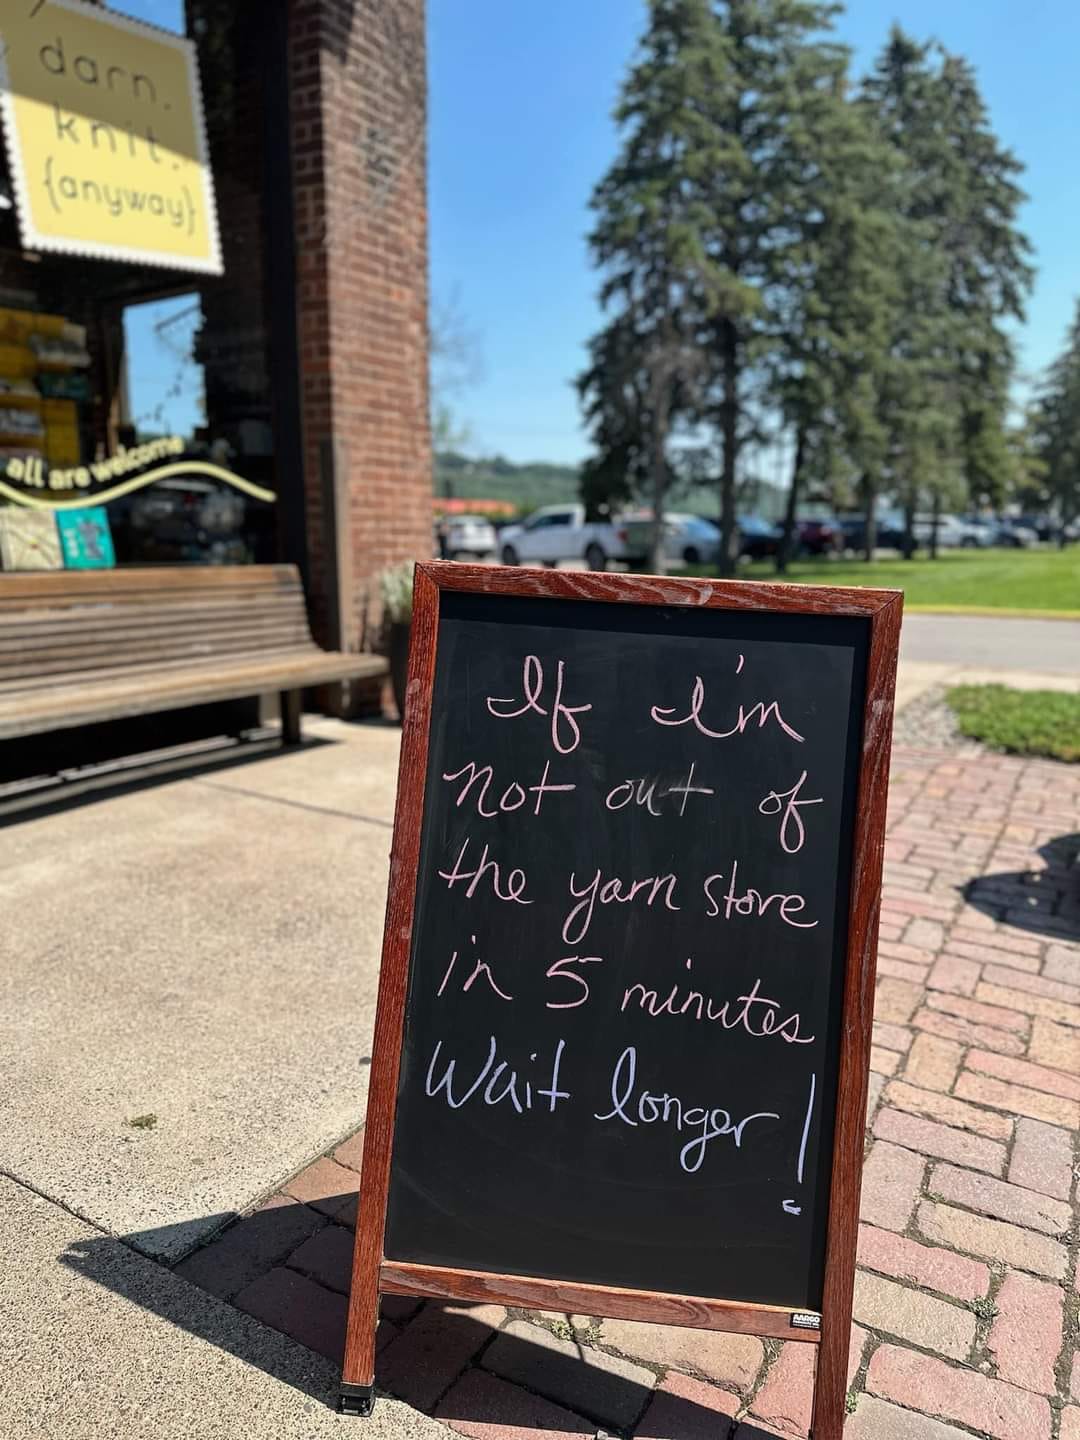 darn.
knit.
{anyway}
all are welcome
If I'm
not out of
the yarn store
in 5 minutes
Wait longer!
AARCO